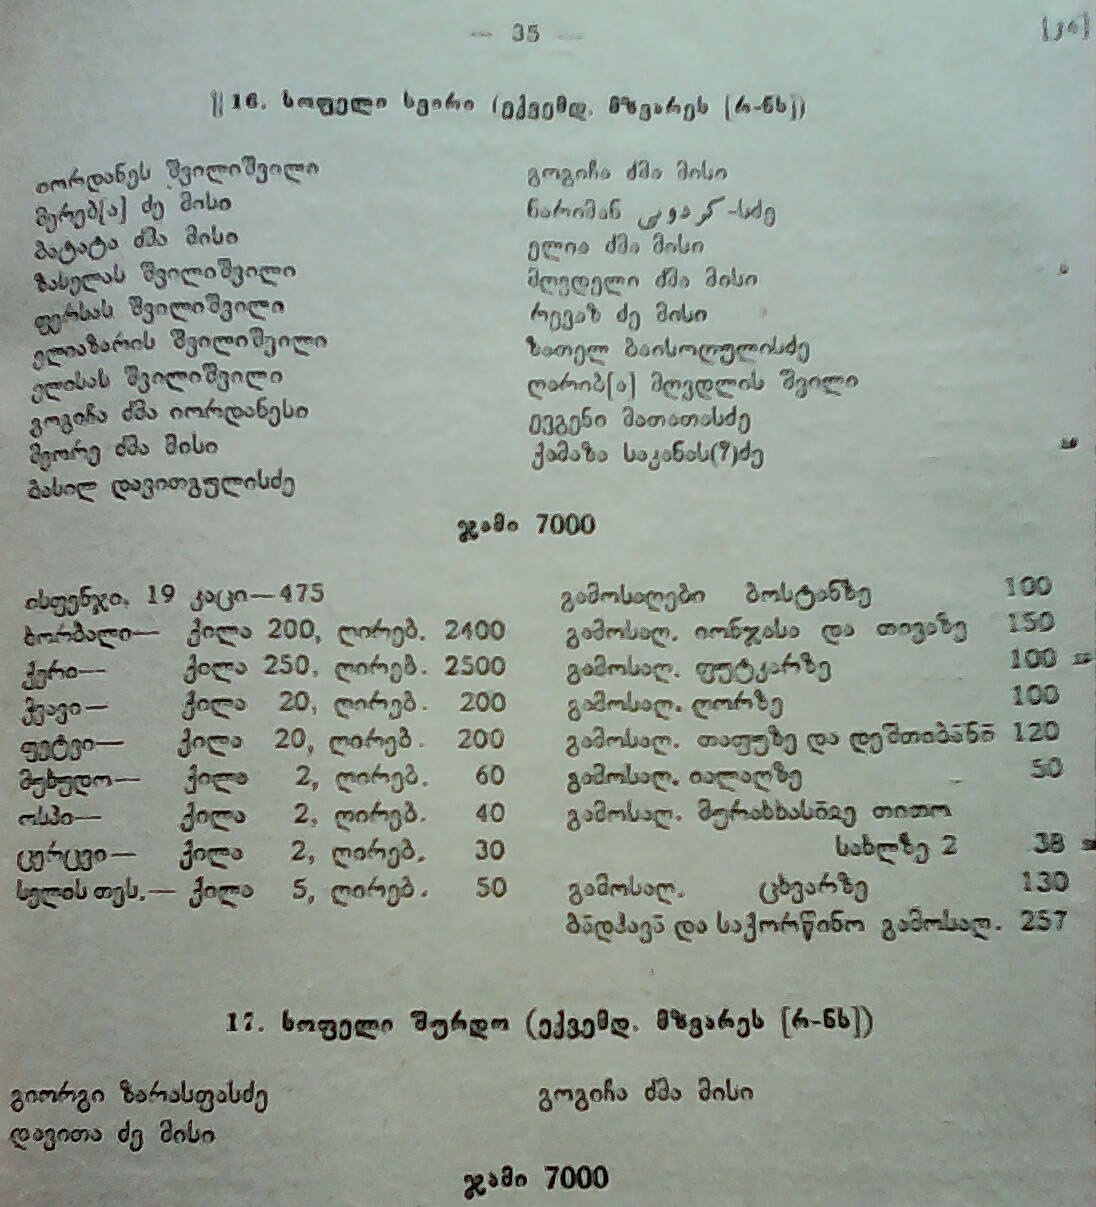 — 35 —
|| 16. სოფელი სვირი (ექვემდ. მზვარეს [რ-ნს])
იორდანეს შვილიშვილი
მერებ[ა] ძე მისი
ბატატა ძმა მისი
ზასელას შვილიშვილი
ფერსას შვილიშვილი
ელიაზარის შვილიშვილი
ელისას შვილიშვილი
გოგიჩა ძმა იორდანესი
მეორე ძმა მისი
ბასილ დავითგულისძე
გოგიჩა ძმა მისი
ნარიმან -სძე
ელია ძმა მისი
მღვდელი ძმა მისი
რევაზ ძე მისი
ზათელ ბაისოღულისძე
ღარიბ[ა] მღვდლის შვილი
ევგენი მათათასძე
ქამაზა საკანას(?)ძე
ჯამი 7000
ისფენჯი, 19 კაცი—475
ხორბალი— ქილა 200, ღირებ. 2400
ქერი— ქილა 250, ღირებ. 2500
ჭვავი— ქილა 20, ღირებ. 200
ფეტვი— ქილა 20, ღირებ. 200
მუხუდო— ქილა 2, ღირებ. 60
ოსპი— ქილა 2, ღირებ. 40
ცერცვი— ქილა 2, ღირებ. 30
სელის თეს.— ქილა 5, ღირებ. 50
გამოსაღები ბოსტანზე 100
გამოსაღ. იონჯასა და თივაზე 150
გამოსაღ. ფუტკარზე 100
გამოსაღ. ღორზე 100
გამოსაღ. თაფუზე და დეშთიბანი 120
გამოსაღ. იალაღზე 50
გამოსაღ. თითო
სახლზე 2 38
გამოსაღ. ცხვარზე 130
ბადჰავა და საქორწინო გამოსაღ. 257
17. სოფელი შურდო (ექვემდ. მზვარეს [რ-ნს])
გიორგი ზარასფასძე
დავითა ძე მისი
გოგიჩა ძმა მისი
ჯამი 7000